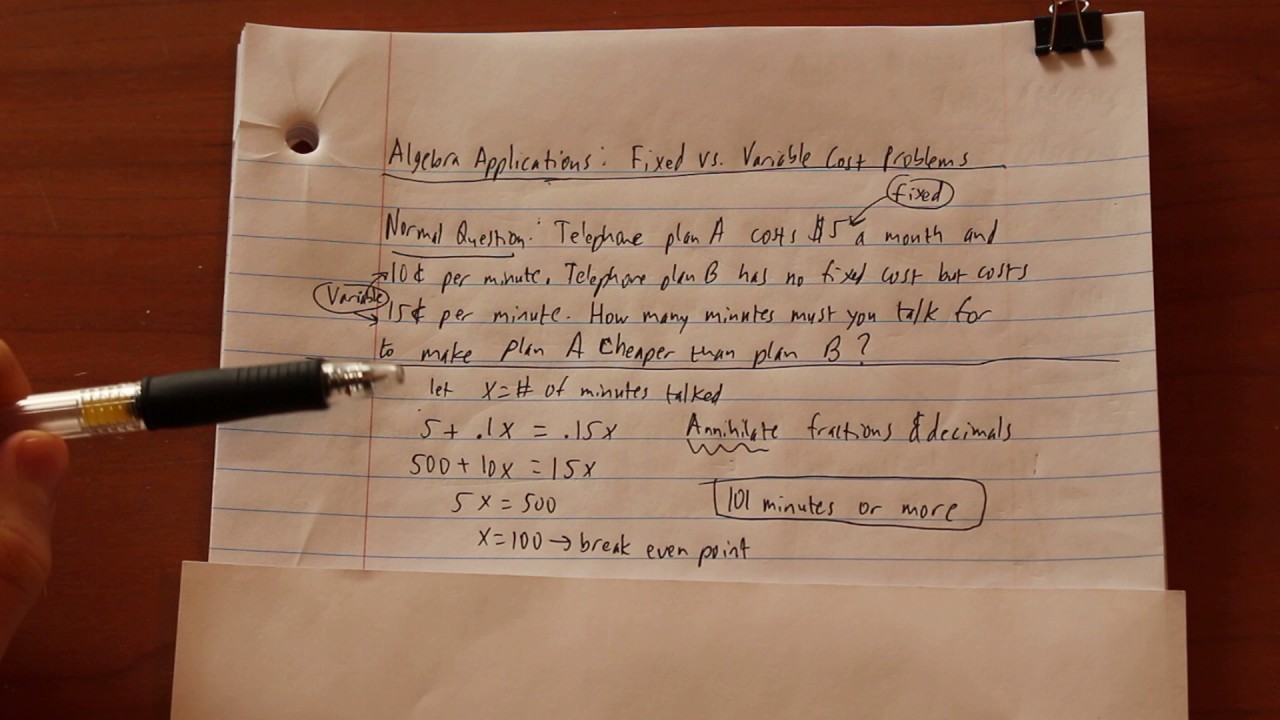 Algebra Applications: Fixed vs. Variable Cost Problems
fixed
Normal Question: Telephone plan A costs $5 a month and
10¢ per minute. Telephone plan B has no fixed cost but costs
Variable
15¢ per minute. How many minutes must you talk for
to make plan A cheaper than plan B?
let x = # of minutes talked
5 + .1x = .15x Annihilate fractions & decimals
500 + 10x = 15x
5x = 500 101 minutes or more
x = 100 → break even point